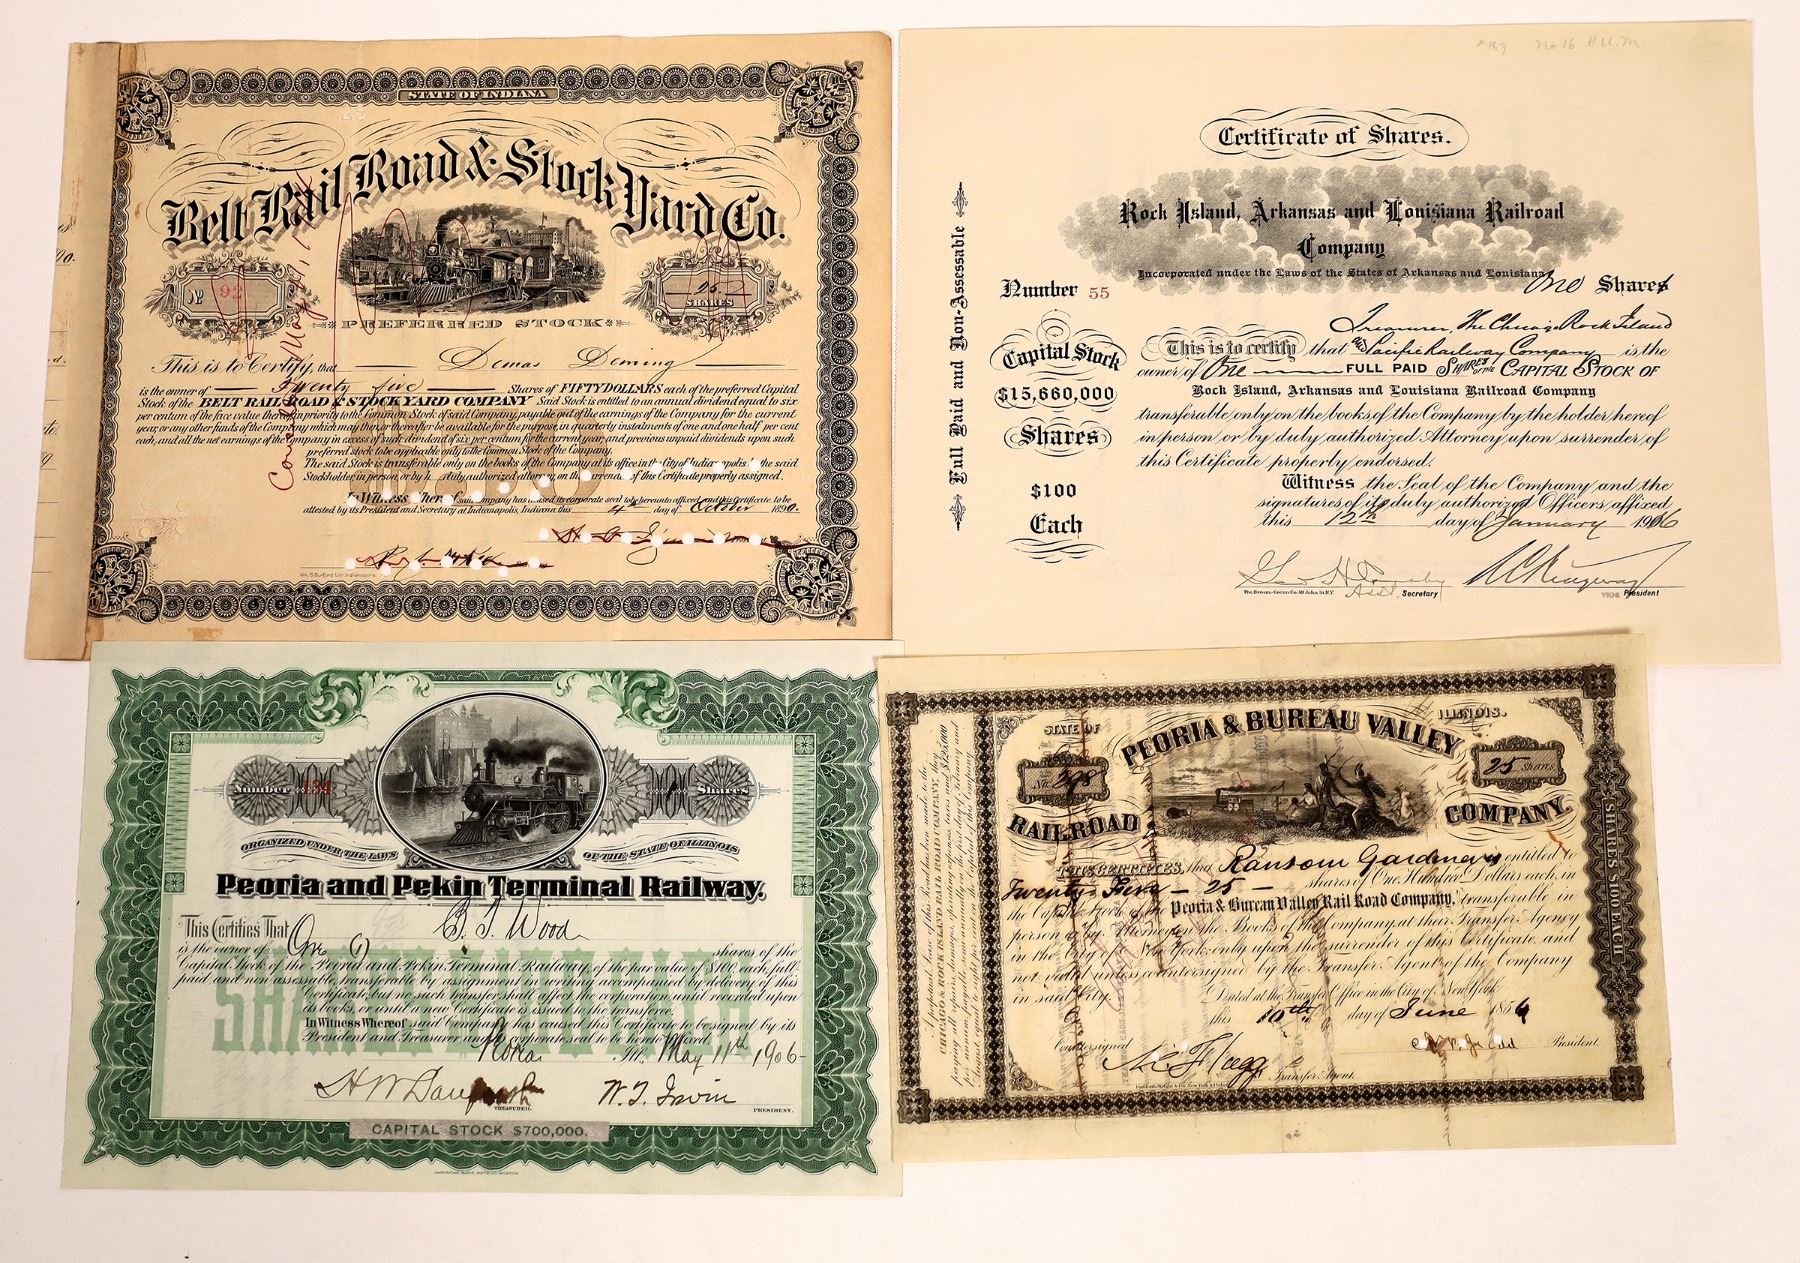 STATE OF INDIANA
Belt Rail Road & Stock Yard Co.
No 92
25
SHARES
PREFERRED STOCK
This is to Certify, that Demas Deming
is the owner of Twenty five Shares of FIFTY DOLLARS each of the preferred Capital
Stock of the BELT RAIL ROAD & STOCK YARD COMPANY Said Stock is entitled to an annual dividend equal to six
per centum of the face value thereof in priority to the Common Stock of said Company, payable out of the earnings of the Company for the current
year, or any other funds of the Company which may then or thereafter be available for the purpose, in quarterly instalments of one and one half per cent
each, and all the net earnings of the company in excess of such dividend of six per centum for the current year, and previous unpaid dividends upon such
preferred stock to be applicable only to the Common Stock of the Company.
The said Stock is transferable only on the books of the Company at its office in the City of Indianapolis by the said
Stockholder, in person, or by h duly authorized attorney, on the surrender of this Certificate properly assigned.
In Witness Whereof said Company has caused its corporate seal to be hereunto affixed, and this Certificate to be
attested by its President and Secretary at Indianapolis, Indiana this 4th day of October 1890.
Wm. B. Burford Lith. Indianapolis.
#167 No 16
Certificate of Shares.
Rock Island, Arkansas and Louisiana Railroad
Company
Incorporated under the Laws of the States of Arkansas and Louisiana
Full Paid and Non-Assessable
Number 55
One Shares
Capital Stock
$15,660,000
Shares
$100
Each
Treasurer, The Chicago Rock Island
This is to certify that and Pacific Railway Company is the
owner of One FULL PAID SHARES OF THE CAPITAL STOCK OF
Rock Island, Arkansas and Louisiana Railroad Company
transferable only on the books of the Company by the holder hereof
in person or by duly authorized Attorney upon surrender of
this Certificate properly endorsed.
Witness the Seal of the Company and the
signatures of its duly authorized Officers affixed
this 12th day of January 1906
Asst. Secretary
VICE President
The Broun-Green Co. 48 John St. N.Y.
Number 134
Shares
ORGANIZED UNDER THE LAWS OF THE STATE OF ILLINOIS
Peoria and Pekin Terminal Railway.
This Certifies That B. T. Wood
is the owner of One (1) shares of the
Capital Stock of the Peoria and Pekin Terminal Railway, of the par value of $100 each, full
paid and non assessable, transferable by assignment in writing accompanied by delivery of this
Certificate, but no such transfer shall affect the corporation until recorded upon
its books, or until a new Certificate is issued to the transferee.
In Witness Whereof said Company has caused this Certificate to be signed by its
President and Treasurer and its corporate seal to be hereto affixed.
Ill. May 11th 1906
TREASURER.
W. T. Irwin
PRESIDENT.
CAPITAL STOCK $700,000.
AMERICAN BANK NOTE CO. BOSTON
STATE OF ILLINOIS.
PEORIA & BUREAU VALLEY
RAILROAD COMPANY.
No. 398
25 Shares
A perpetual lease of this Road has been made to the
CHICAGO & ROCK ISLAND RAIL ROAD COMPANY, they
SHARES $100 EACH
THIS CERTIFIES, that Ransom Gardner is entitled to
Twenty Five - 25 - shares of One Hundred Dollars each, in
the Capital Stock of the Peoria & Bureau Valley Rail Road Company, transferable in
person or by Attorney on the Books of the Company, at their Transfer Agency
in the City of New York, only upon the surrender of this Certificate, and
not valid unless countersigned by the Transfer Agent of the Company
in said City.
Dated at the Transfer Office in the City of New York
this 10th day of June 1856
Countersigned
Transfer Agent.
President.